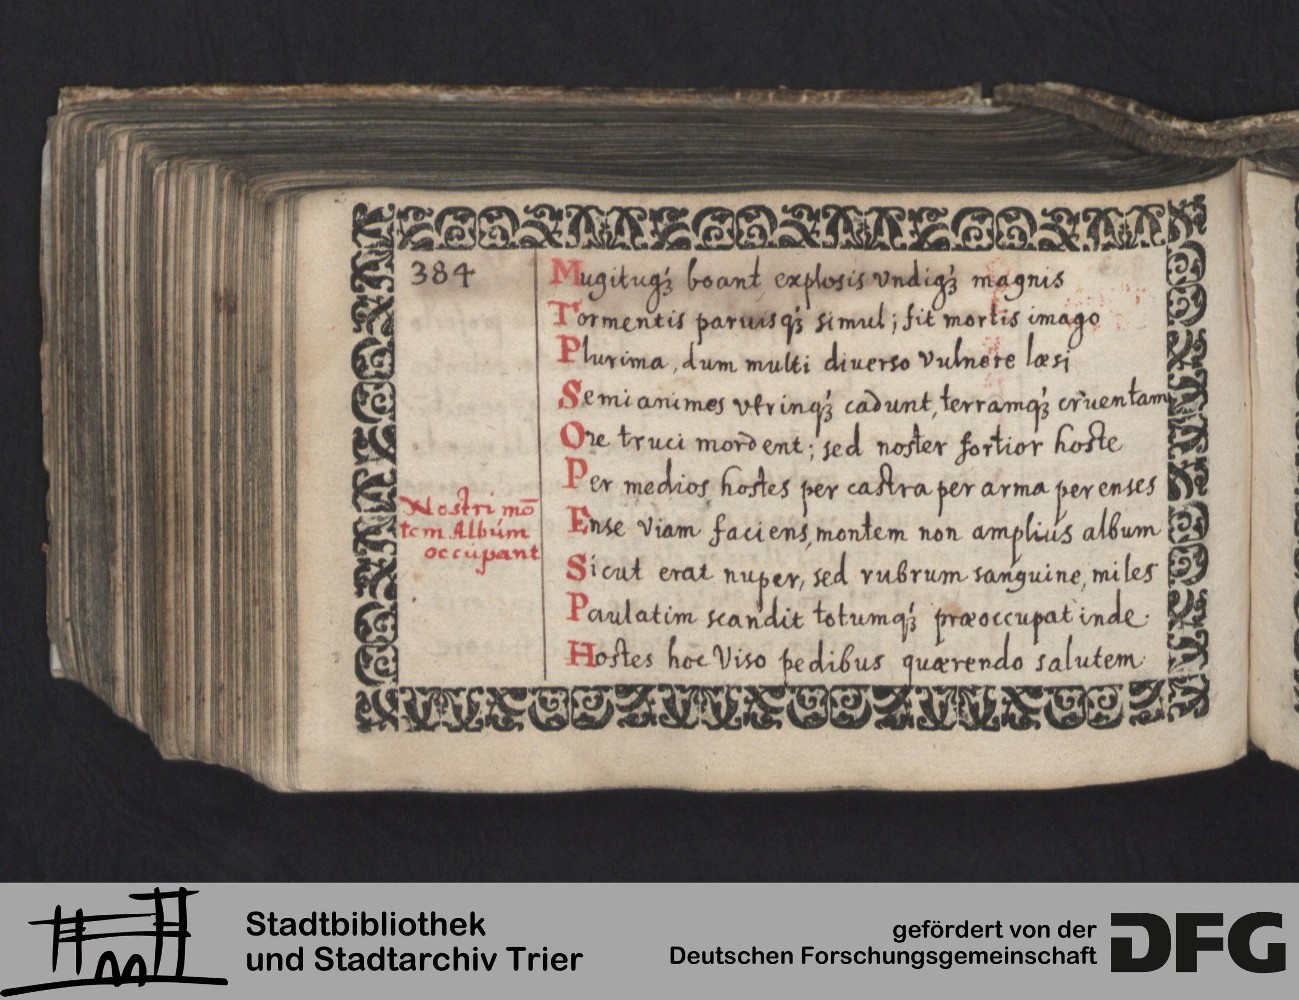 384
Mugituqꝫ boant explosis vndiqꝫ magnis
Tormentis paruisqꝫ simul; fit mortis imago
Plurima, dum multi diuerso vulnere læsi
Semianimes vtrinqꝫ cadunt, terramqꝫ cruentam
Ore truci mordent; sed noster fortior hoste
Per medios hostes per castra per arma per enses
Nostri mō
tem Album
occupant
Ense viam faciens, montem non amplius album
Sicut erat nuper, sed rubrum sanguine, miles
Paulatim scandit totumqꝫ præoccupat inde
Hostes hoc Viso pedibus quærendo salutem
Stadtbibliothek
und Stadtarchiv Trier
gefördert von der
Deutschen Forschungsgemeinschaft
DFG